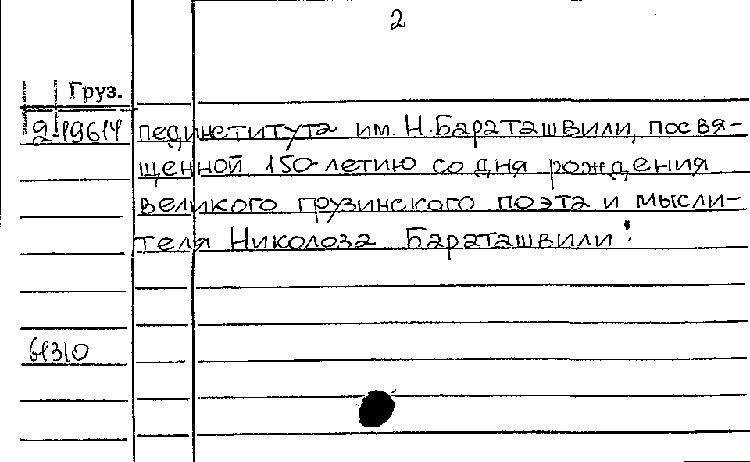 2
Груз.
2-19614 пединститута им. Н. Бараташвили, посвя-
щенной 150-летию со дня рождения
великого грузинского поэта и мысли-
теля Николоза Бараташвили!
61310